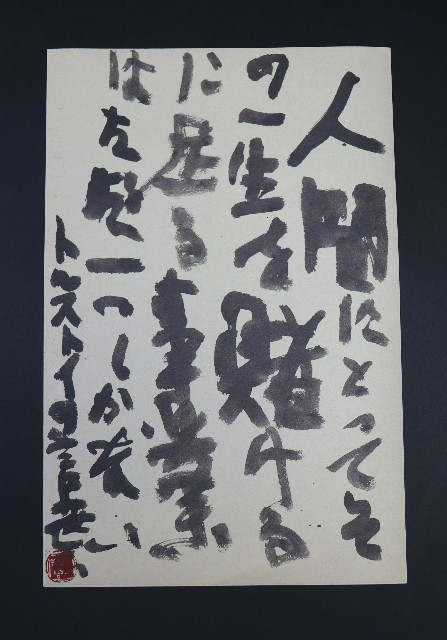 人間にとってそ
の一生を賭ける
に足る事業
は一つしかない
トルストイの言葉